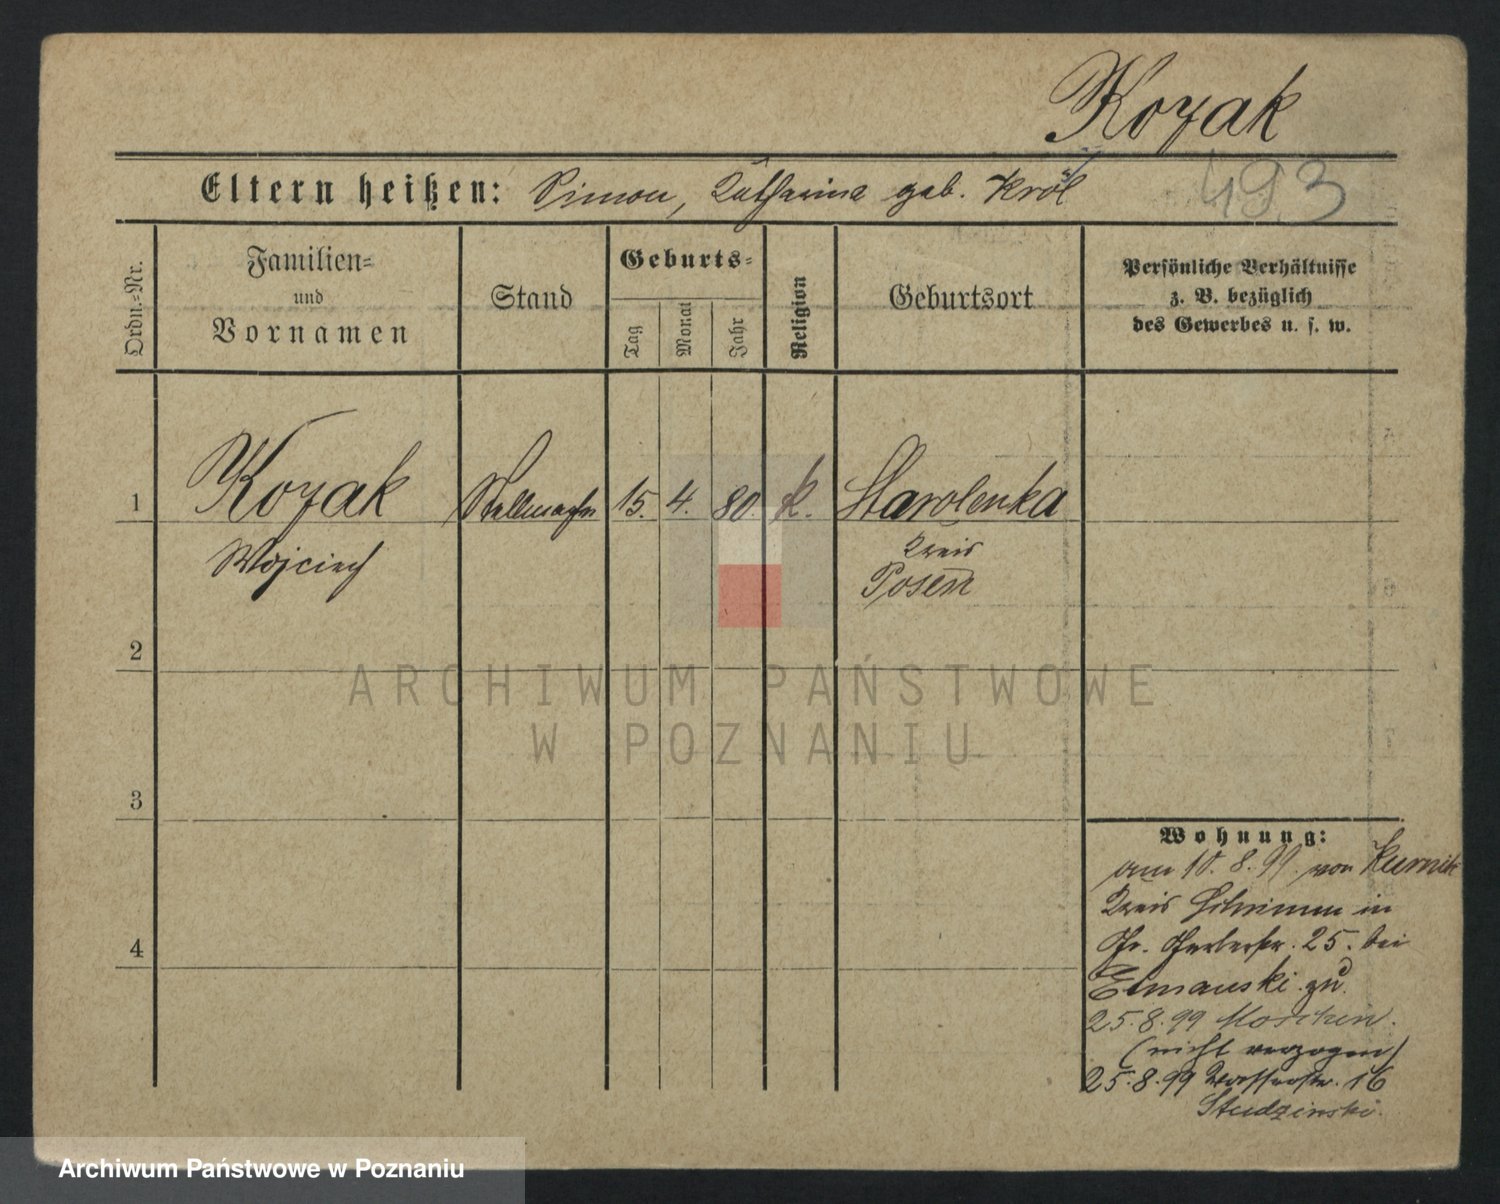 Kozak
Eltern heißen: Simon, Katharina geb. Król
493
Ordn.=Nr.
Familien=
und
Vornamen
Stand
Geburts=
Tag
Monat
Jahr
Religion
Geburtsort
Persönliche Verhältnisse
z. B. bezüglich
des Gewerbes u. s. w.
1
Kozak
Stellmacher
15.
4.
80.
k.
Starolenka
Wojciech
Kreis
Posen
2
ARCHIWUM PAŃSTWOWE
W POZNANIU
3
4
Wohnung:
am 10.8.99. von Kurnik
Kreis Schrimm in
Gr. Gerberstr. 25. bei
zu.
25.8.99 Moschin.
(nicht verzogen)
25.8.99 Wasserstr. 16
Studzinski.
Archiwum Państwowe w Poznaniu